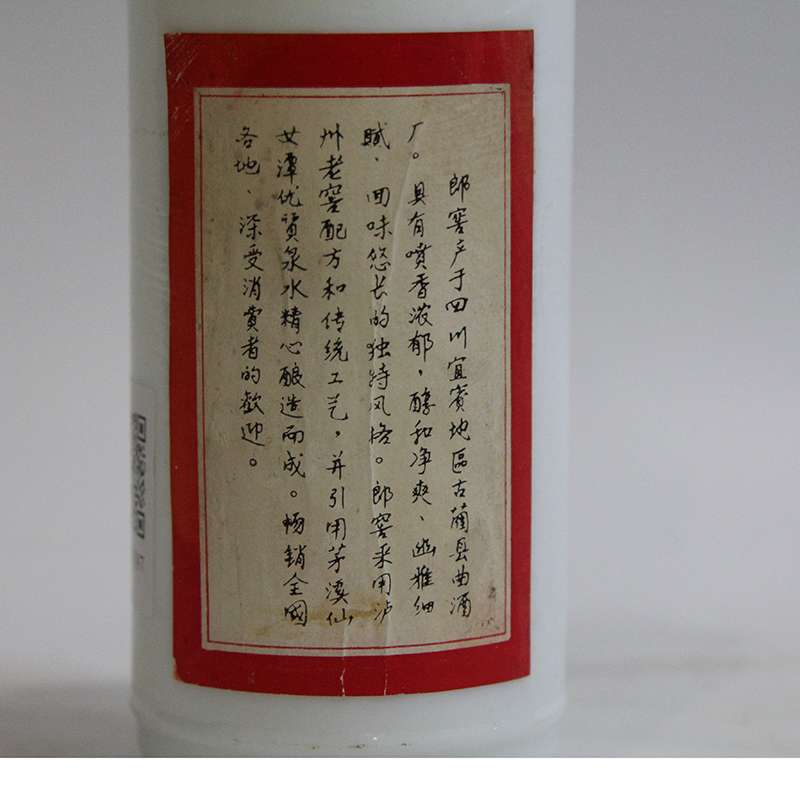 郎窖产于四川宜賓地區古藺县曲酒
厂。具有噴香浓郁，醇和净爽、幽雅细
腻、回味悠长的独特风格。郎窖采用泸
州老窖配方和传统工艺，并引用茅溪仙
女潭优質泉水精心酿造而成。畅銷全國
各地、深受消費者的歡迎。